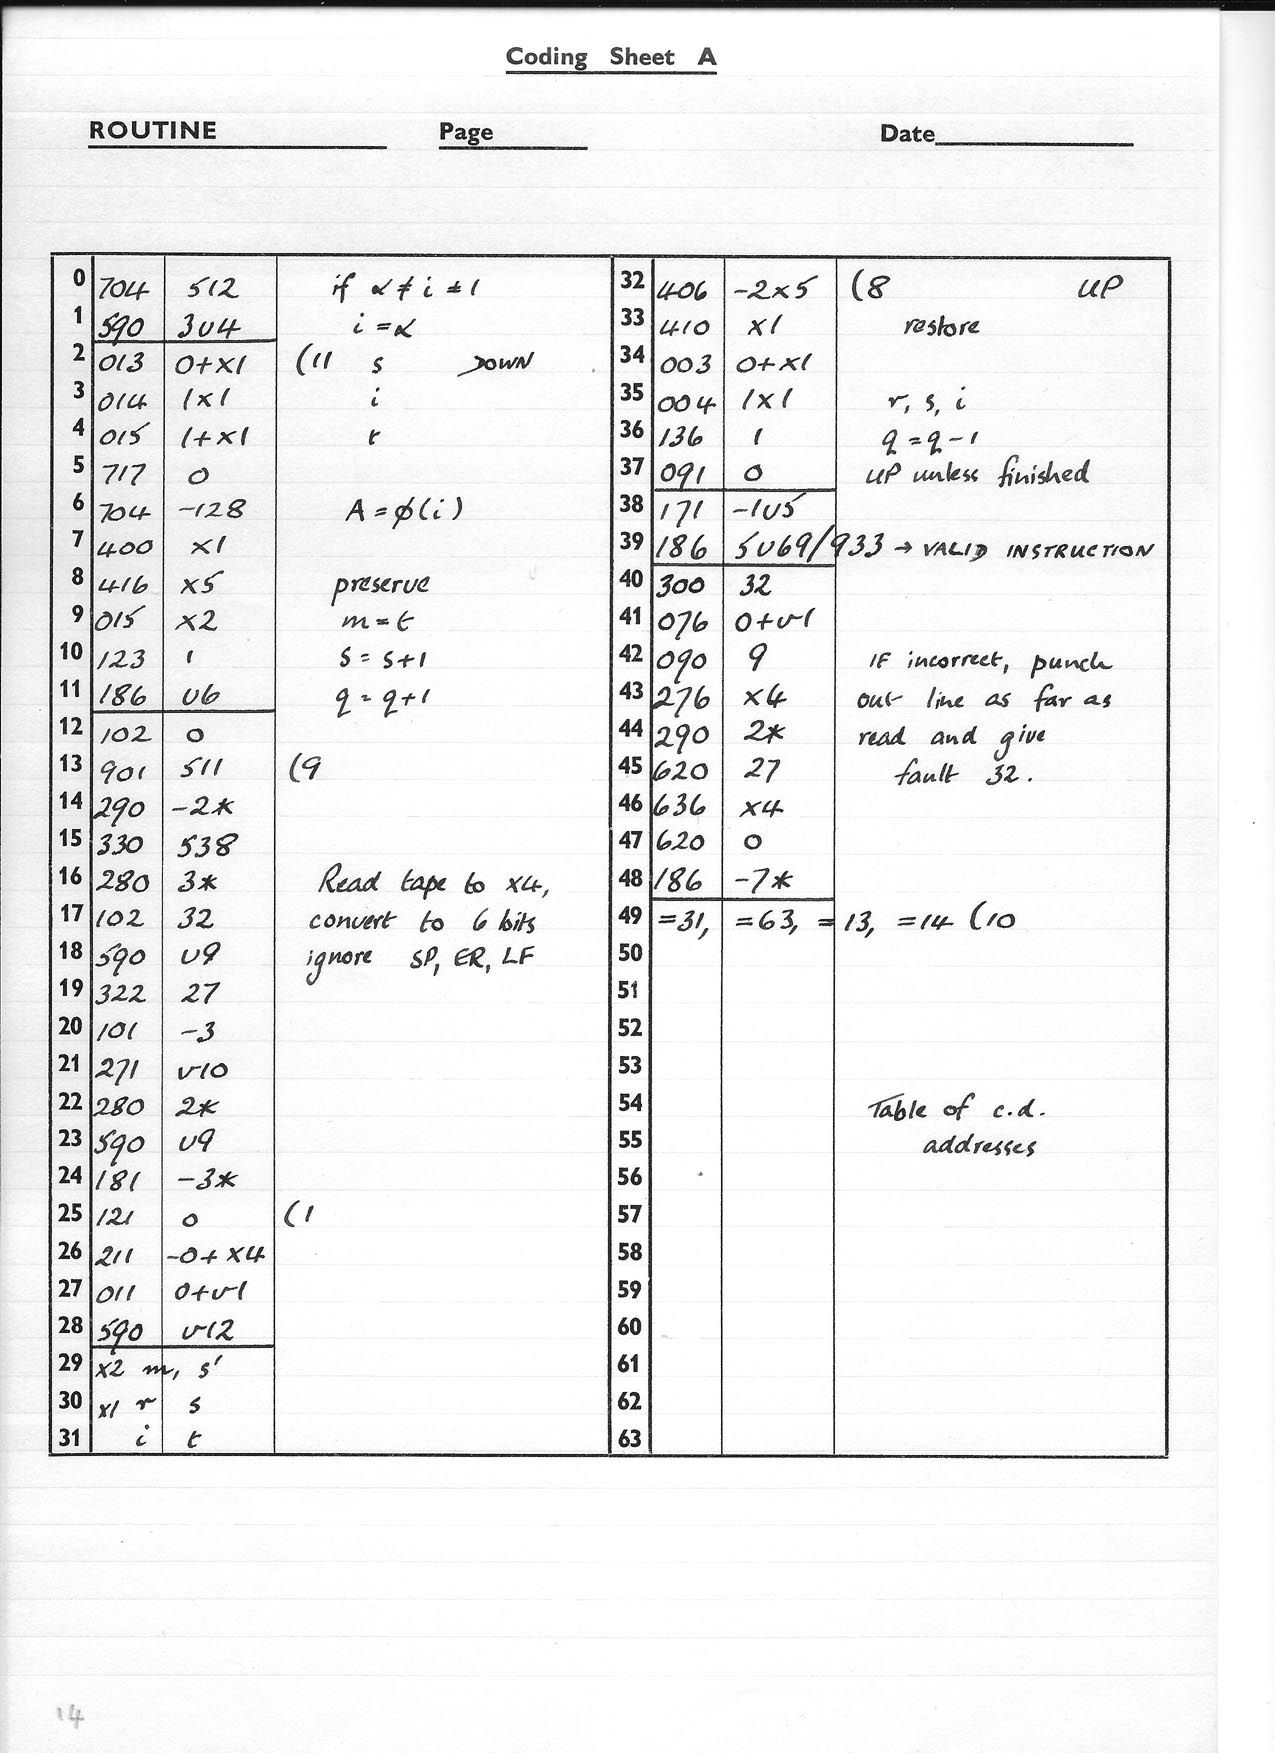 Coding Sheet A
ROUTINE Page Date
0 704 512 if α ≠ i ± 1
1 590 3v4 i = α
2 013 0+x1 (11 s DOWN
3 014 1x1 i
4 015 1+x1 t
5 717 0
6 704 -128 A = φ(i)
7 400 x1
8 416 x5 preserve
9 015 x2 m = t
10 123 1 s = s+1
11 186 v6 q = q+1
12 102 0
13 901 511 (9
14 290 -2*
15 330 538
16 280 3* Read tape to x4,
17 102 32 convert to 6 bits
18 590 v9 ignore SP, ER, LF
19 322 27
20 101 -3
21 271 v10
22 280 2*
23 590 v9
24 181 -3*
25 121 0 (1
26 211 -0+x4
27 011 0+v1
28 590 v12
29 x2 m, s'
30 x1 r s
31 i t
32 406 -2x5 (8 UP
33 410 x1 restore
34 003 0+x1
35 004 1x1 r, s, i
36 136 1 q = q-1
37 091 0 UP unless finished
38 171 -1v5
39 186 5v69/933 → VALID INSTRUCTION
40 300 32
41 076 0+v1
42 090 9 IF incorrect, punch
43 276 x4 out line as far as
44 290 2* read and give
45 620 27 fault 32.
46 636 x4
47 620 0
48 186 -7*
49 =31, =63, =13, =14 (10
50
51
52
53
54 Table of c.d.
55 addresses
56
57
58
59
60
61
62
63
14